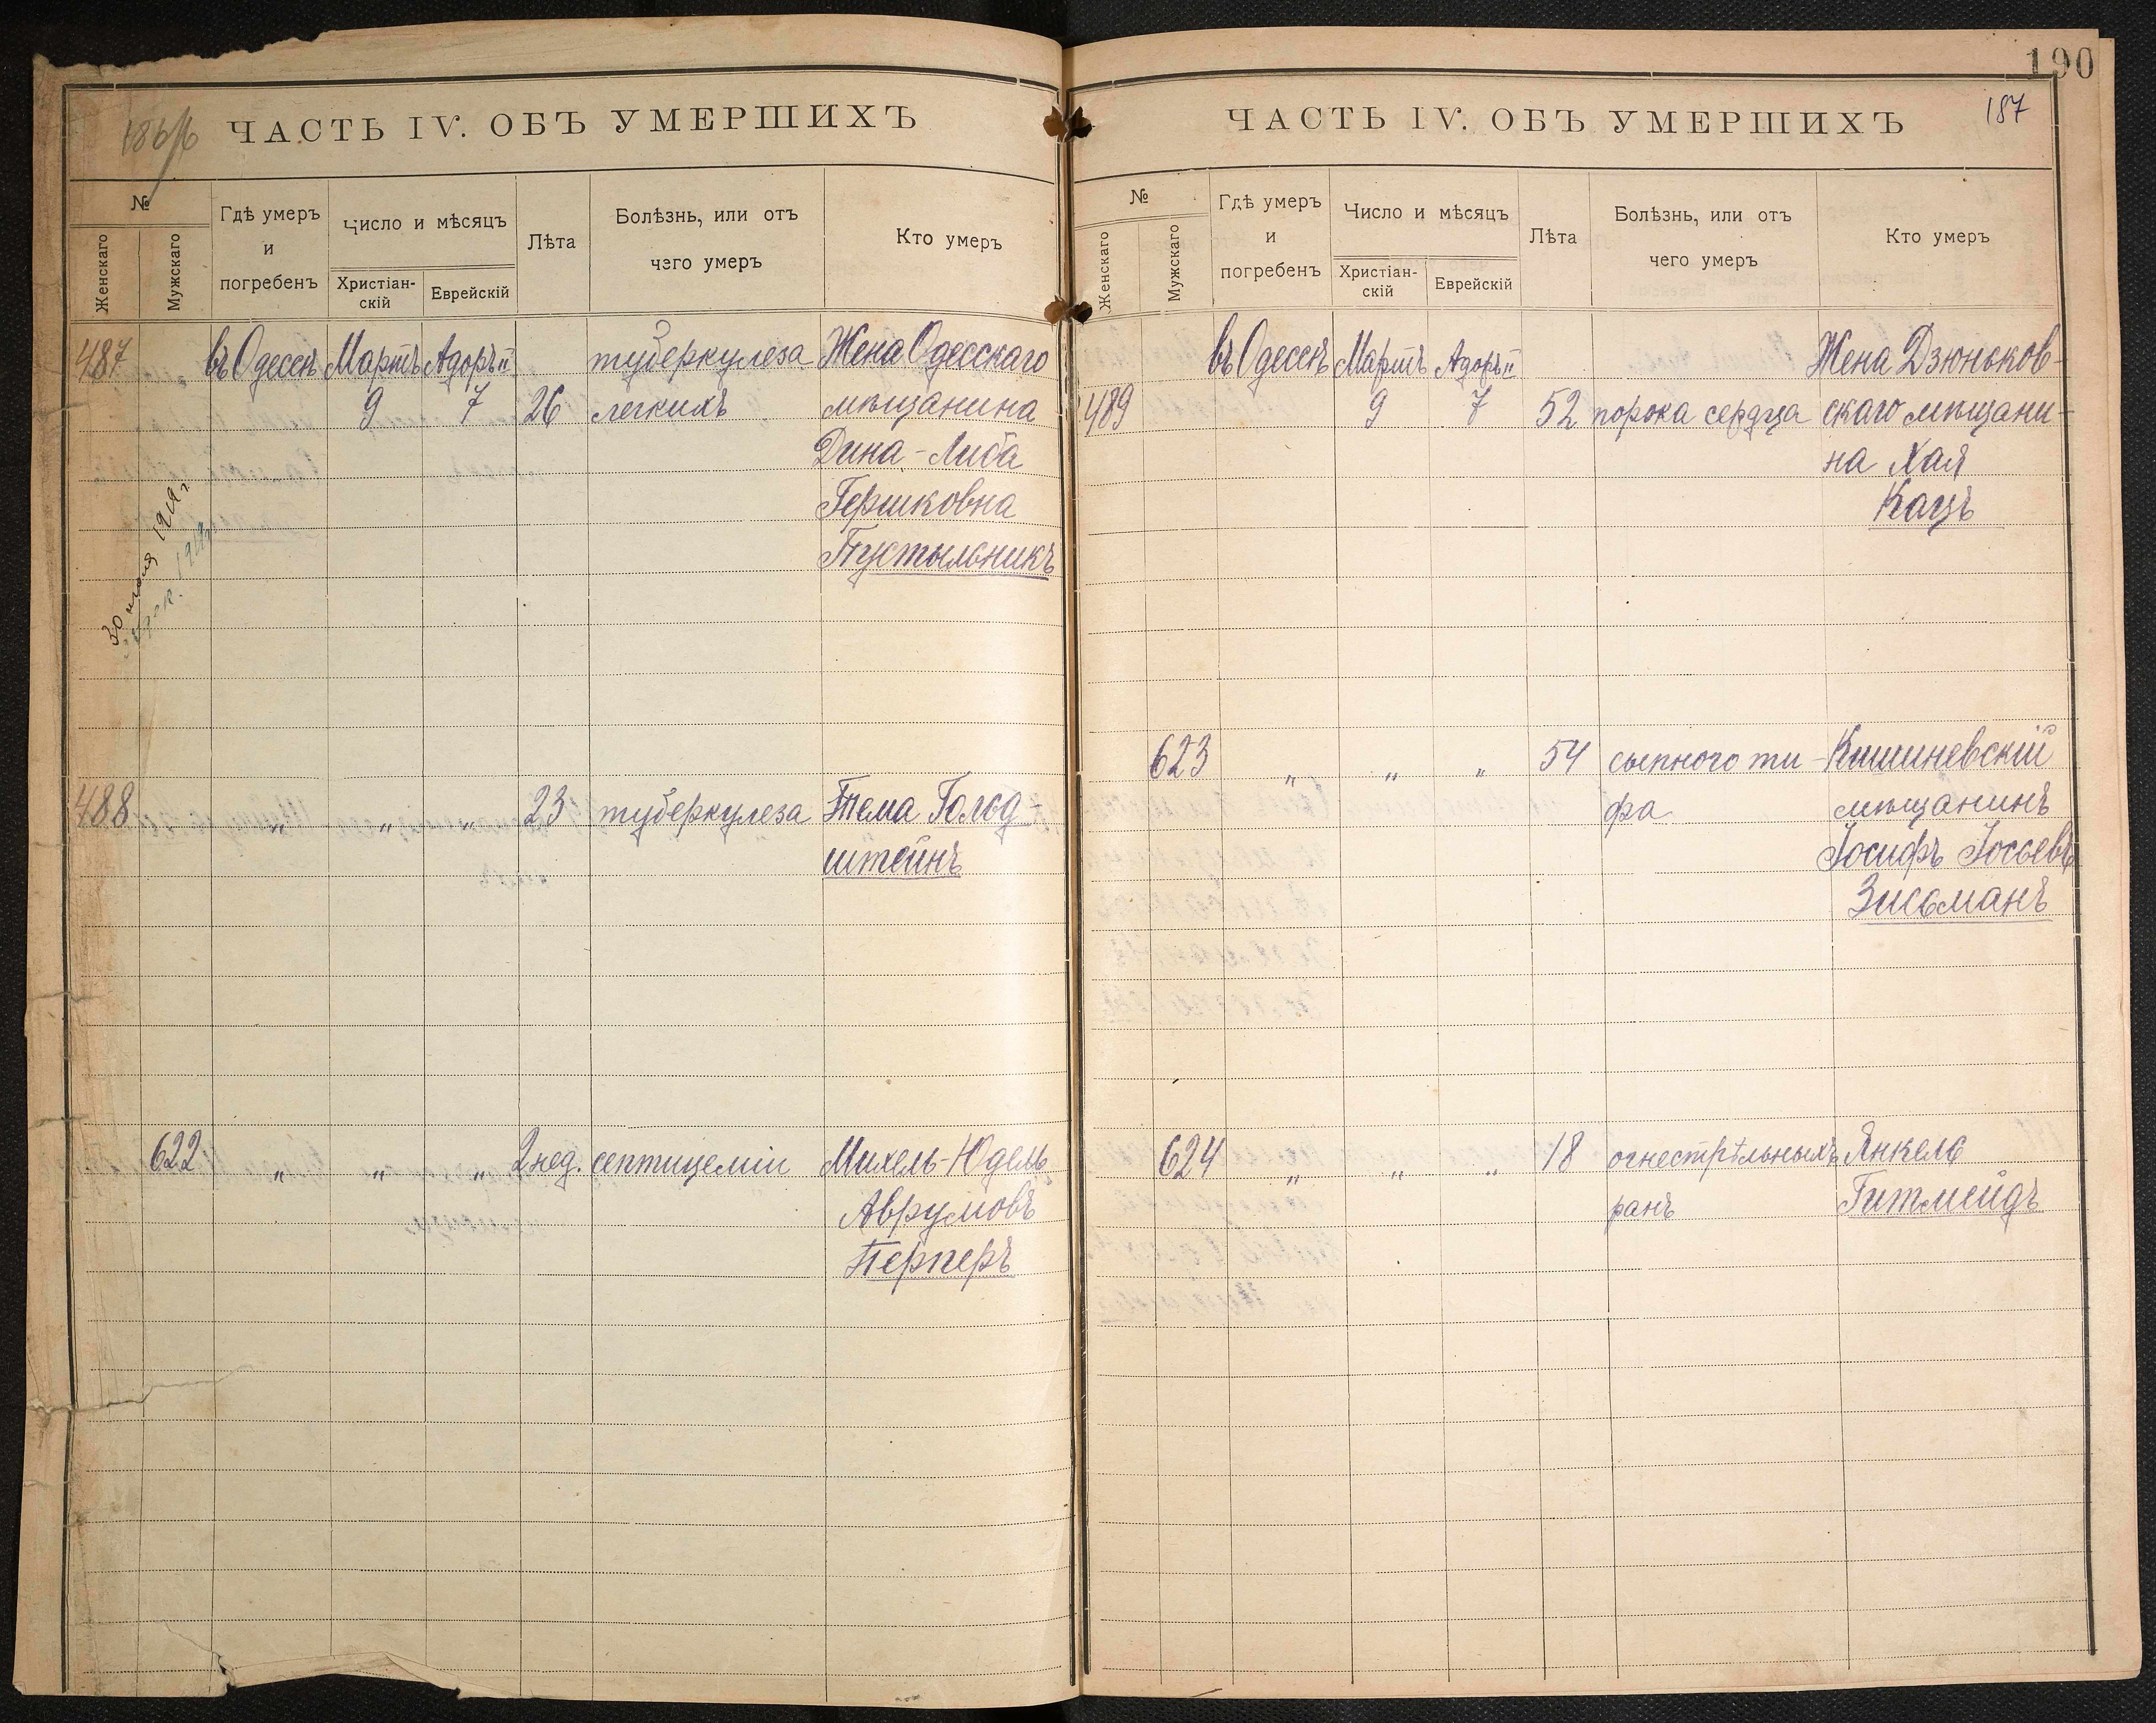 190
ЧАСТЬ IV. ОБЪ УМЕРШИХЪ
№
Женскаго
Мужскаго
Гдѣ умеръ
и
погребенъ
Число и мѣсяцъ
Христіан-
скій
Еврейскій
Лѣта
Болѣзнь, или отъ
чего умеръ
Кто умеръ
487 въ Одессѣ Мартъ Адоръ II туберкулеза Жена Одесскаго
9 7 26 легкихъ мѣщанина
Дина-Либа
Гершковна
Пустыльникъ
30 июля 1919 г.
488 " " " 23 туберкулеза Тема Голод-
штейнъ
622 " " " 2 нед. септицеміи Михель-Юдель
Аврумовъ
Перперъ
ЧАСТЬ IV. ОБЪ УМЕРШИХЪ
187
№
Женскаго
Мужскаго
Гдѣ умеръ
и
погребенъ
Число и мѣсяцъ
Христіан-
скій
Еврейскій
Лѣта
Болѣзнь, или отъ
чего умеръ
Кто умеръ
въ Одессѣ Мартъ Адоръ II Жена Дзюньков-
489 9 7 52 порока сердца скаго мѣщани-
на Хая
Кацъ
623 " " " 54 сыпного ти- Кишиневскій
фа мѣщанинъ
Іосифъ Іосьевъ
Зисьманъ
624 " " " 18 огнестрѣльныхъ Янкель
ранъ Гитмейдъ